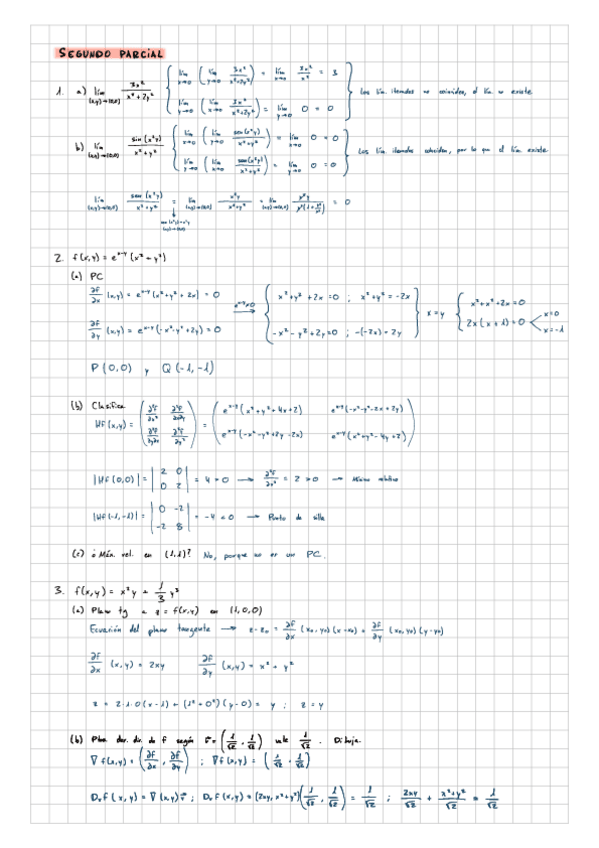 SEGUNDO PARCIAL
1. a) lím (x,y)→(0,0) 3x²/(x²+2y²) { lím x→0 ( lím y→0 3x²/(x²+2y²) ) = lím x→0 3x²/x² = 3
lím y→0 ( lím x→0 3x²/(x²+2y²) ) = lím y→0 0 = 0 } Los lím. iterados no coinciden, el lím. no existe
b) lím (x,y)→(0,0) sin(x²y)/(x²+y²) { lím x→0 ( lím y→0 sen(x²y)/(x²+y²) ) = lím x→0 0 = 0
lím y→0 ( lím x→0 sen(x²y)/(x²+y²) ) = lím y→0 0 = 0 } Los lím. iterados coinciden, por lo que el lím. existe
lím (x,y)→(0,0) sen(x²y)/(x²+y²) = lím (x,y)→(0,0) x²y/(x²+y²) = lím (x,y)→(0,0) = 0
sen(x²y)≈x²y
(x,y)→(0,0)
2. f(x,y) = eˣ⁻ʸ(x²+y²)
(a) PC
∂f/∂x (x,y) = eˣ⁻ʸ(x²+y²+2x) = 0
∂f/∂y (x,y) = eˣ⁻ʸ(-x²-y²+2y) = 0
eˣ⁻ʸ≠0 → { x²+y²+2x=0 ; x²+y²=-2x
-x²-y²+2y=0 ; -(-2x)+2y } x=y { x²+x²+2x=0
2x(x+1)=0 < x=0
x=-1
P(0,0) y Q(-1,-1)
(b) Clasifica
Hf(x,y) = ( ∂²f/∂x² ∂²f/∂x∂y
∂²f/∂y∂x ∂²f/∂y² ) = ( eˣ⁻ʸ(x²+y²+4x+2) eˣ⁻ʸ(-x²-y²-2x+2y)
eˣ⁻ʸ(-x²-y²+2y-2x) eˣ⁻ʸ(x²+y²-4y+2) )
|Hf(0,0)| = | 2 0
0 2 | = 4 > 0 → ∂²f/∂x² = 2 > 0 → Mínimo relativo
|Hf(-1,-1)| = | 0 -2
-2 8 | = -4 < 0 → Punto de silla
(c) ¿Máx. rel. en (1,1)? No, porque no es un PC.
3. f(x,y) = x²y + 1/3 y³
(a) Plano tg a z = f(x,y) en (1,0,0)
Ecuación del plano tangente → z-z₀ = ∂f/∂x (x₀,y₀)(x-x₀) + ∂f/∂y (x₀,y₀)(y-y₀)
∂f/∂x (x,y) = 2xy ∂f/∂y (x,y) = x²+y²
z = 2·1·0(x-1) + (1²+0²)(y-0) = y ; z = y
(b) der. dir. de f según v⃗ = (1/√2, 1/√2) vale 1/√2. Dibuja.
∇f(x,y) = (∂f/∂x, ∂f/∂y) ; ∇f(x,y) = (1/√2, 1/√2)
Dᵥf(x,y) = ∇(x,y)v⃗ ; Dᵥf(x,y) = (2xy, x²+y²)(1/√2, 1/√2) = 1/√2 ; 2xy/√2 + (x²+y²)/√2 = 1/√2